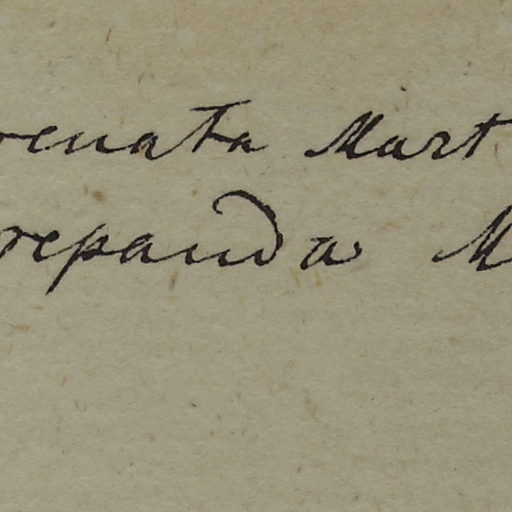 renata Mart
repanda M